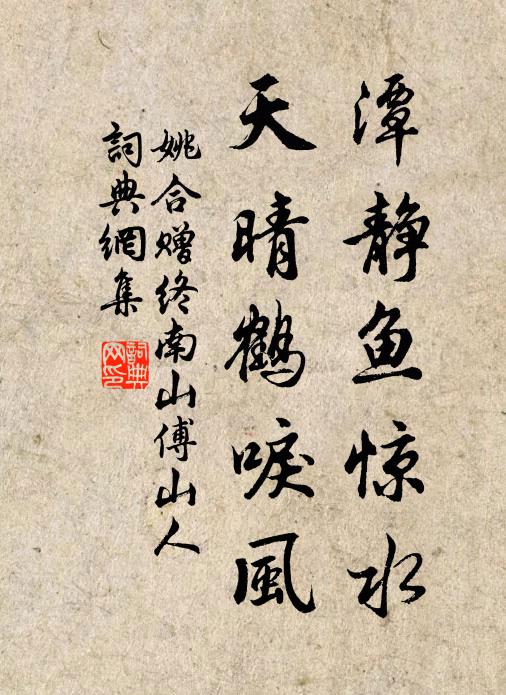 潭静鱼惊水
天晴鶴唳風
姚合赠终南山傅山人
詞典網集
詞典网印